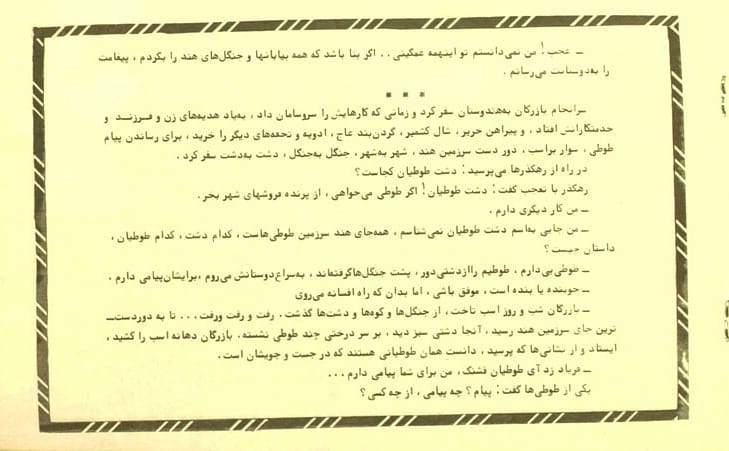 ــ عجب! من نمی‌دانستم تو اینهمه غمگینی . . اگر بنا باشد که همه بیابانها و جنگل‌های هند را بگردم ، پیغامت
را به‌دوستانت می‌رسانم .
سرانجام بازرگان به‌هندوستان سفر کرد و زمانی که کارهایش را سروسامان داد ، به‌یاد هدیه‌های زن و فرزنــد و
خدمتکارانش افتاد ، و پیراهن حریر ، شال کشمیر ، گردن‌بند عاج ، ادویه و تحفه‌های دیگر را خرید ، برای رساندن پیام
طوطی ، سوار براسب ، دور دست سرزمین هند ، شهر به‌شهر ، جنگل به‌جنگل ، دشت به‌دشت سفر کرد .
در راه از رهگذرها می‌پرسید : دشت طوطیان کجاست ؟
رهگذر با تعجب گفت : دشت طوطیان ! اگر طوطی می‌خواهی ، از پرنده فروشهای شهر بخر .
ــ من کار دیگری دارم .
ــ من جایی به‌اسم دشت طوطیان نمی‌شناسم ، همه‌جای هند سرزمین طوطی‌هاست ، کدام دشت ، کدام طوطیان ،
داستان چیست ؟
ــ طوطی‌یی‌دارم ، طوطیم رااز‌دشتی‌دور ، پشت جنگل‌ها‌گرفته‌اند ، به‌سراغ‌دوستانش می‌روم ،برایشان‌پیامی دارم .
ــ جوینده یا بنده است ، موفق باشی ، اما بدان که راه افسانه می‌روی
ــ بازرگان شب و روز اسب تاخت ، از جنگل‌ها و کوه‌ها و دشت‌ها گذشت . رفت و رفت ورفت . . . تا به دوردست‌ــ
ترین جای سرزمین هند رسید ، آنجا دشتی سبز دید ، بر سر درختی چند طوطی نشسته . بازرگان دهانه اسب را کشید ،
ایستاد و از نشانی‌ها که پرسید ، دانست همان طوطیانی هستند که در جست و جویشان است .
ــ فریاد زد آی طوطیان قشنگ ، من برای شما پیامی دارم . . .
یکی از طوطی‌ها گفت : پیام ؟ چه پیامی ، از چه کسی ؟